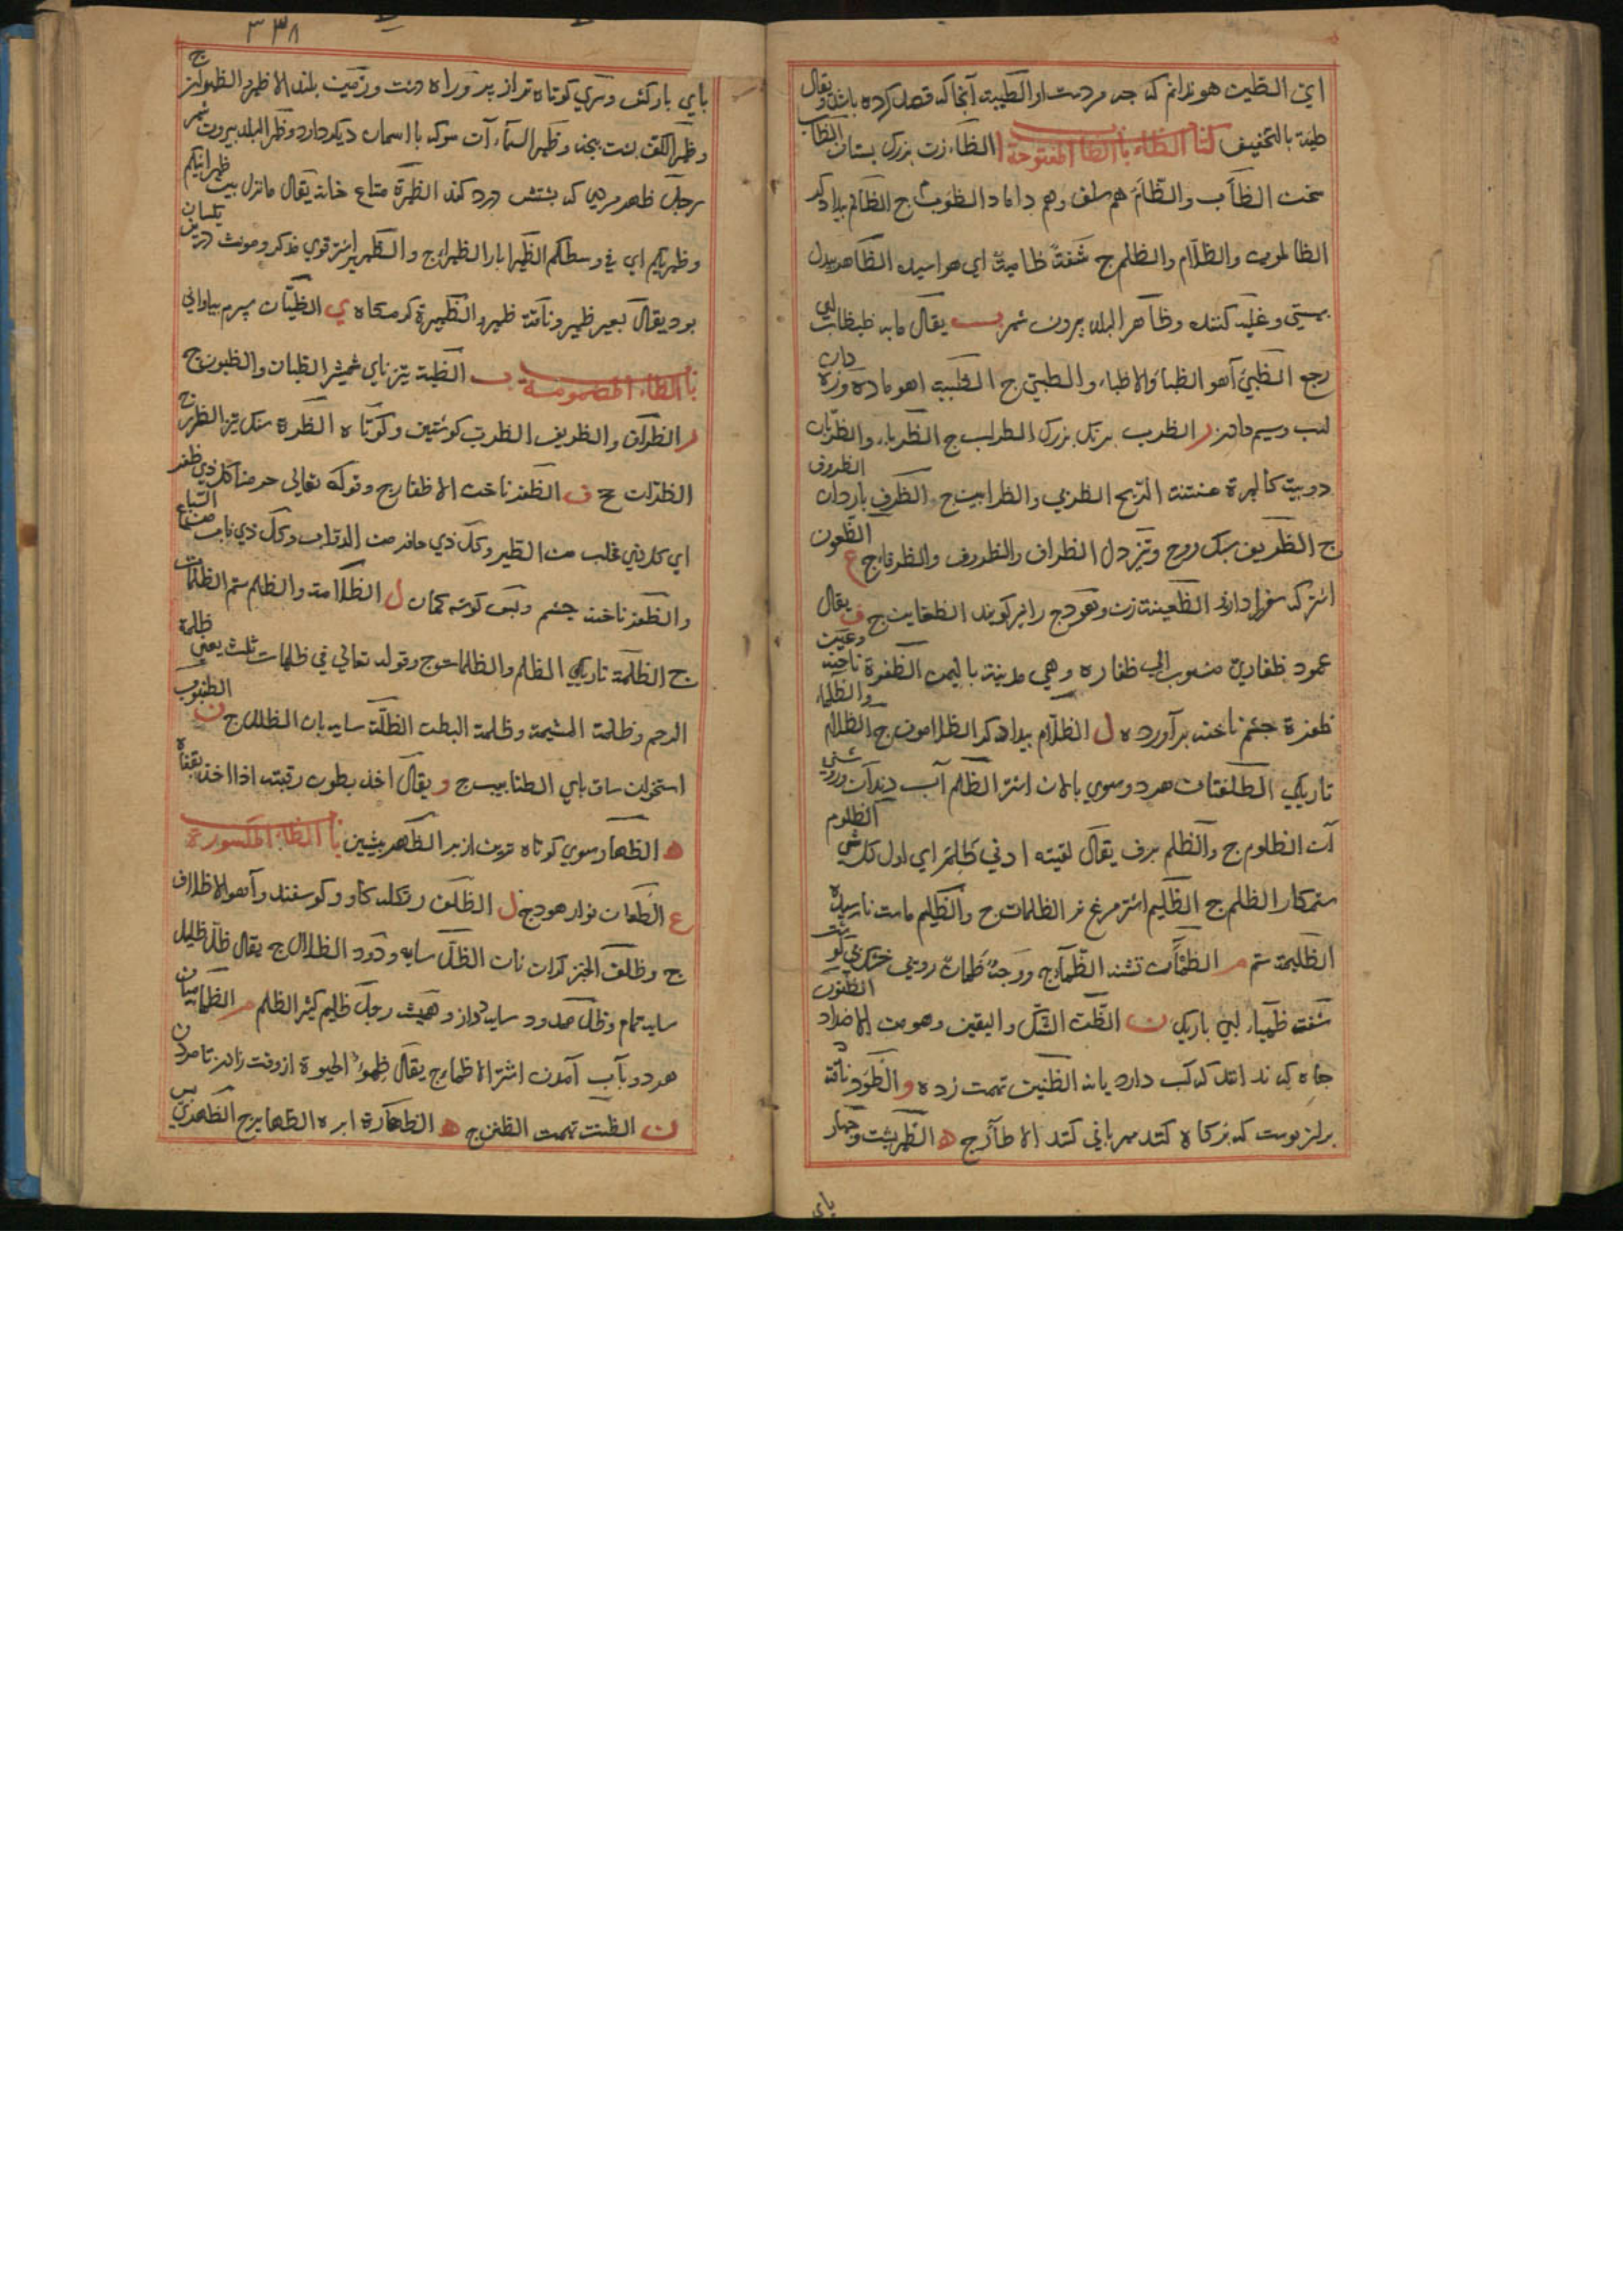 این الطین هو ندانم که چه مردست او الطیبة آنجا که قصد کرده باشد ویقال
طیة بالتخفیف کتاب الظاء با الظا المفتوحة ا الظاء زن بزرک بستان الظاب
سخت الظأب والظأم هم سلف وهم داماد الظؤب ج الظالم بیدادکر
الظالمون والظلام والظلم ج شفة ظامیة ای هوا سیده الظاهر بیدل
بهستی وغلبه کننده وظاهر البلد بیرون شهر ب یقال مابه ظبظاب ای
رجع الظبی آهو الظبا والاظباء والظبی ج الظبیة آهو ماده وزه دان
لب وسیم مادر ر الظرب برتل بزرک الظراب ج الظرباء والظربان
دویبة کالهرة منتنة الریح الظربی والظرابین ج الظرف باردان الظروف
ج الظریف سبک روح وتیز دل الظراف والظروف والظرفاء ج ع الظعون
اشتر که سفرا دارند الظعینة زن وهودج را نیز کویند الظعاین ج ف یقال
عمود ظفاری منسوب الی ظفاره وهی مدینة بالیمن الظفرة ناخنه وعین
ظفرة چشم ناخنه برآورده ل الظلام بیدادکر الظلامون ج الظلام والظلماء
تاریکی الظلفتان هر دو سوی پالان اشتر الظلم آب دندان وروشنی
آن الظلوم ج والظلم برف یقال لقیته ادنی ظلم ای اول کل شی الظلوم
ستمکار الظلم ج الظلیم اشتر مرغ نر الظلمان ج والظلیم ماست نارسیده
الظلیمة ستم م الظمآن تشنه الظماء ج ووجه ظمآن رویی خشک بی کوشت
شفة ظمیاء لبی باریک ن الظن الشک والیقین وهو من الاضداد الظنون
چاه که ندانند که آب دارد یا نه الظنین تهمت زده و الظؤد ناقة
برلز پوست که پرکاه کنند مهربانی کند الاظآر ج ه الظهر پشت وچهار
پای
٣٣٨
پای بارکش وپری کوتاه تر از پر وراه دشت وزمین بلند الاظهر والظهور ج
وظهر الکف پشت پنجه وظهر السماء آن سو که با آسمان دیکر دارد وظهر البلد بیرون شهر
رجل ظهر مردی که پشتش درد کند الظهرة متاع خانه یقال مانزل بین ظهرانیکم
وظهریکم ای فی وسطکم الظهیر ایار الظهراء ج والظهیر اشتر قوی مذکر ومونث درین یکسان
بود یقال بعیر ظهیر وناقة ظهیر والظهیرة کرمکاه ی الظیان سپرم بیابانی
با الظاء المضمومة ب الظبة تیزنای شمشیر الظبات والظبون ج
ر الظراف والظریف الظرب کوشتین وکوتاه الظررة سنک تیز الظرر ج
الظران ج ف الظفر ناخن الاظفار ج وقوله تعالی حرمنا کل ذی ظفر
ای کل ذی مخلب من الطیر وکل ذی حافر من الدواب وکل ذی ناب من السباع
والظفر ناخنه چشم وپس کوشه کمان ل الظلامة والظلم ستم الظلمات
ج الظلمة تاریکی الظلم والظلمات ج وقوله تعالی فی ظلمات ثلث یعنی ظلمة
الرحم وظلمة المشیمة وظلمة البطن الظلة سایه بان الظلل ج ن الظنبوب
استخوان ساق پای الظنابیب ج و یقال اخذ بظوف رقبته اذا اخذ بقفاه
ه الظهار سوی کوتاه ترین از پر الظهر پیشین با الظاء المکسورة
ع الظعان نوار هودج ل الظلف زنکله کاو وکوسفند وآهو الاظلاف
ج وظلف الخبز کران نان الظل سایه ودود الظلال ج یقال ظل ظلیل
سایه تمام وظل ممدود سایه دراز وهمیشه رجل ظلیم کثیر الظلم م الظمأ میان
هر دو بآب آمدن اشتر الاظماء ج یقال ظمؤ الحیوة از وقت زادن تا مردن
ن الظنة تهمت الظنن ج ه الظهارة ابره الظهایر ج الظهری پس